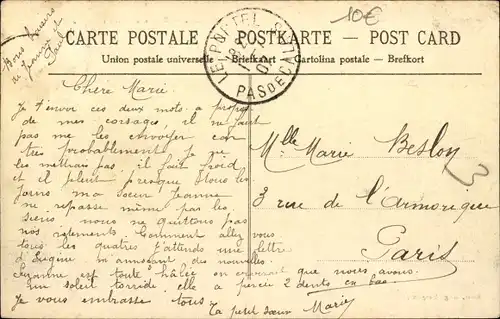 10€
Bons baisers
de Jeanne et
Paul
CARTE POSTALE — POSTKARTE — POST CARD
Union postale universelle Briefkart — Cartolina postale — Brefkort
LE PORTEL
PAS DE CALAIS
Chère Marie
Je t'envoi ces deux mots a propos
de mes corsages il ne faut
pas me les envoyer car
très probablement je ne
les mettrais pas il fait froid
et il pleut presque tous les
jours ma sœur Jeanne
ne repasse même pas les
siens nous ne quittons pas
nos vêtements. Comment allez vous
tous les quatres j'attends une lettre
d'Eugène m'annonçant des nouvelles.
Suzanne est toute hâlée on croirait que nous avons
un soleil torride elle a percée 2 dents en bas
Je vous embrasse tous
Ta petite sœur Marie
Mlle Marie Beslon
3 rue de l'Armorique
Paris
3